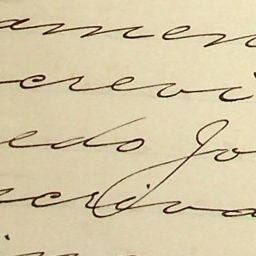 amen
crevi
edo Jo
scriva